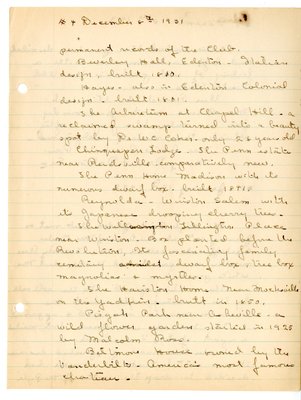 December 6th 1931
permanent records of the Club.
Beverley Hall, Edenton - Italian
design, built 1810.
Hayes - also in Edenton - Colonial
design - built 1801.
The Arboretum at Chapel Hill - a
reclaimed swamp turned into a beauty
spot by Dr. W. C. Coker. only 28 years old
Chinquapen Lodge. The Penn estate
near Reidsville, comparatively new.
The Penn Home - Madison with its
numerous dwarf box. built
Reynolda - Winston Salem with
its Japanese drooping cherry trees.
The Wellington Place
near Winston. Box planted before the
Revolution, by family,
remaining dwarf box, tree box
magnolias & myrtles.
The Hairston Home. Near Mocksville
on the Yadkin - built in 1850.
Park near Asheville - a
wild flower garden started in 1925
by Malcolm Ross.
Biltmore House owned by the
Vanderbilts - America's most famous
chateau -